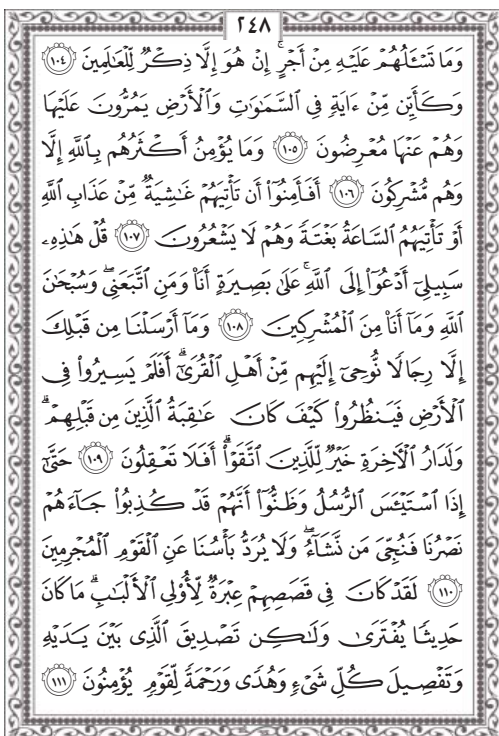 ٢٤٨
وَمَا تَسْـَٔلُهُمْ عَلَيْهِ مِنْ أَجْرٍ ۚ إِنْ هُوَ إِلَّا ذِكْرٌ لِّلْعَٰلَمِينَ ١٠٤
وَكَأَيِّن مِّنْ ءَايَةٍ فِى السَّمَٰوَٰتِ وَالْأَرْضِ يَمُرُّونَ عَلَيْهَا
وَهُمْ عَنْهَا مُعْرِضُونَ ١٠٥ وَمَا يُؤْمِنُ أَكْثَرُهُم بِاللَّهِ إِلَّا
وَهُم مُّشْرِكُونَ ١٠٦ أَفَأَمِنُوٓا۟ أَن تَأْتِيَهُمْ غَٰشِيَةٌ مِّنْ عَذَابِ اللَّهِ
أَوْ تَأْتِيَهُمُ السَّاعَةُ بَغْتَةً وَهُمْ لَا يَشْعُرُونَ ١٠٧ قُلْ هَٰذِهِۦ
سَبِيلِىٓ أَدْعُوٓا۟ إِلَى اللَّهِ ۚ عَلَىٰ بَصِيرَةٍ أَنَا۠ وَمَنِ اتَّبَعَنِى ۖ وَسُبْحَٰنَ
اللَّهِ وَمَآ أَنَا۠ مِنَ الْمُشْرِكِينَ ١٠٨ وَمَآ أَرْسَلْنَا مِن قَبْلِكَ
إِلَّا رِجَالًا نُّوحِىٓ إِلَيْهِم مِّنْ أَهْلِ الْقُرَىٰٓ ۗ أَفَلَمْ يَسِيرُوا۟ فِى
الْأَرْضِ فَيَنظُرُوا۟ كَيْفَ كَانَ عَٰقِبَةُ الَّذِينَ مِن قَبْلِهِمْ ۗ
وَلَدَارُ الْأَخِرَةِ خَيْرٌ لِّلَّذِينَ اتَّقَوْا۟ ۗ أَفَلَا تَعْقِلُونَ ١٠٩ حَتَّىٰٓ
إِذَا اسْتَيْـَٔسَ الرُّسُلُ وَظَنُّوٓا۟ أَنَّهُمْ قَدْ كُذِبُوا۟ جَآءَهُمْ
نَصْرُنَا فَنُجِّىَ مَن نَّشَآءُ ۖ وَلَا يُرَدُّ بَأْسُنَا عَنِ الْقَوْمِ الْمُجْرِمِينَ
١١٠ لَقَدْ كَانَ فِى قَصَصِهِمْ عِبْرَةٌ لِّأُو۟لِى الْأَلْبَٰبِ ۗ مَا كَانَ
حَدِيثًا يُفْتَرَىٰ وَلَٰكِن تَصْدِيقَ الَّذِى بَيْنَ يَدَيْهِ
وَتَفْصِيلَ كُلِّ شَىْءٍ وَهُدًى وَرَحْمَةً لِّقَوْمٍ يُؤْمِنُونَ ١١١